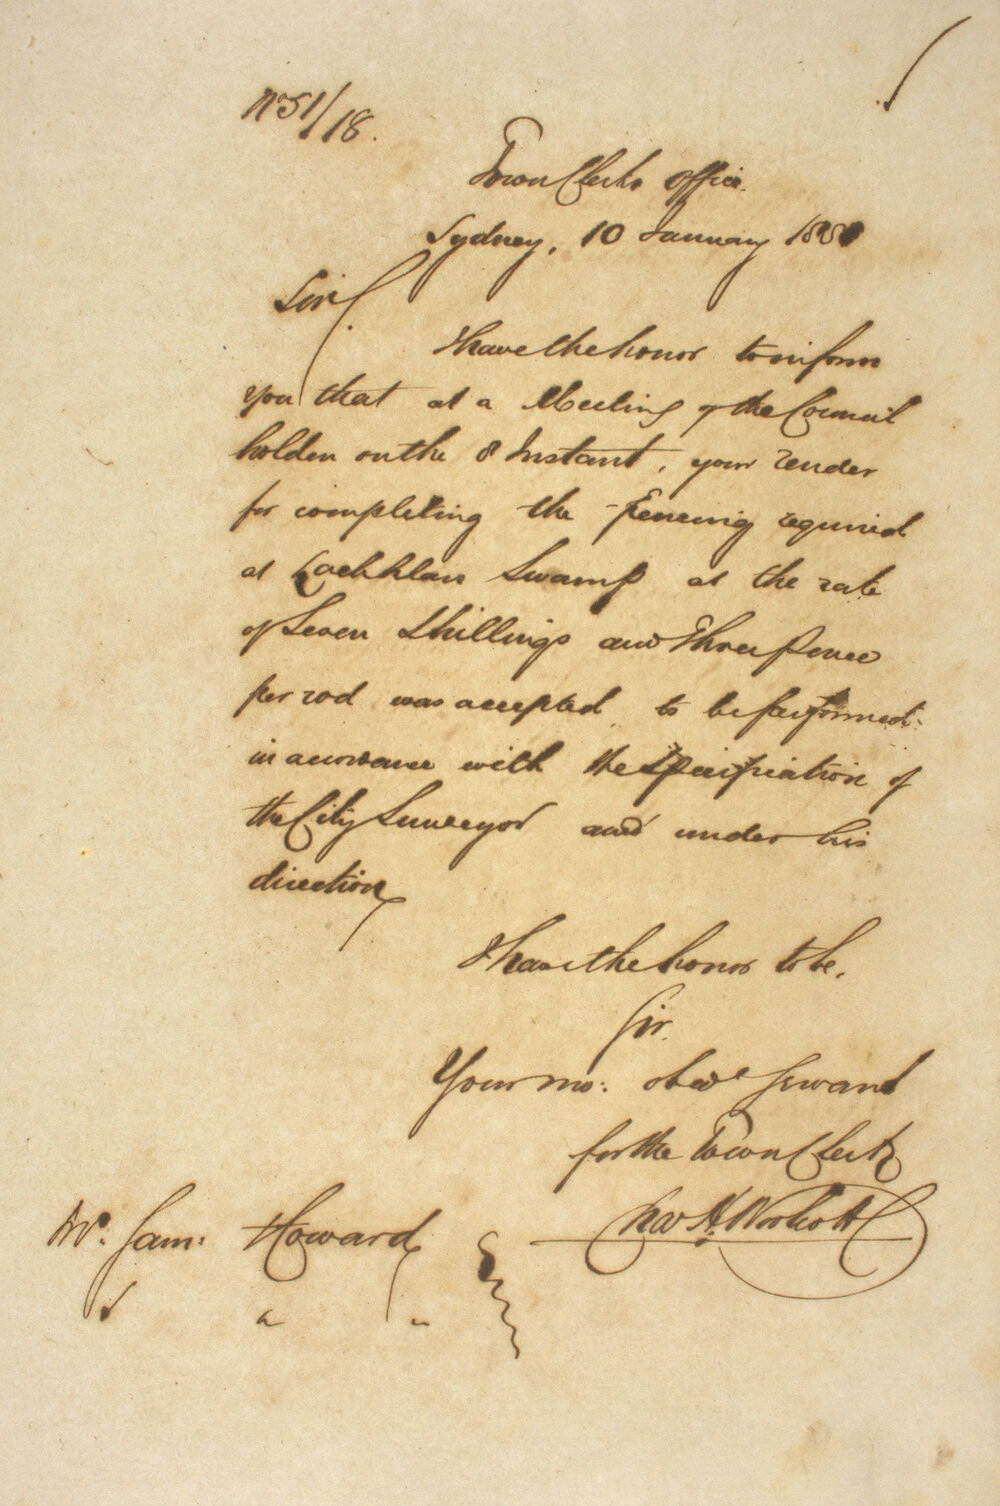 No 51/18.
Town Clerks Office.
Sydney, 10 January
Sir
I have the honor to inform
you that at a Meeting of the Council
holden on the 8 Instant, your Tender
for completing the Fencing required
at Lachlan Swamp at the rate
of Seven Shillings and Three pence
per rod was accepted to be performed
in accordance with the Specification of
the City Surveyor and under his
direction
I have the honor to be.
Sir.
Your mo: obedt Servant
for the Town Clerk
Chas H. Woolcott
Mr. Sam: Howard
" "